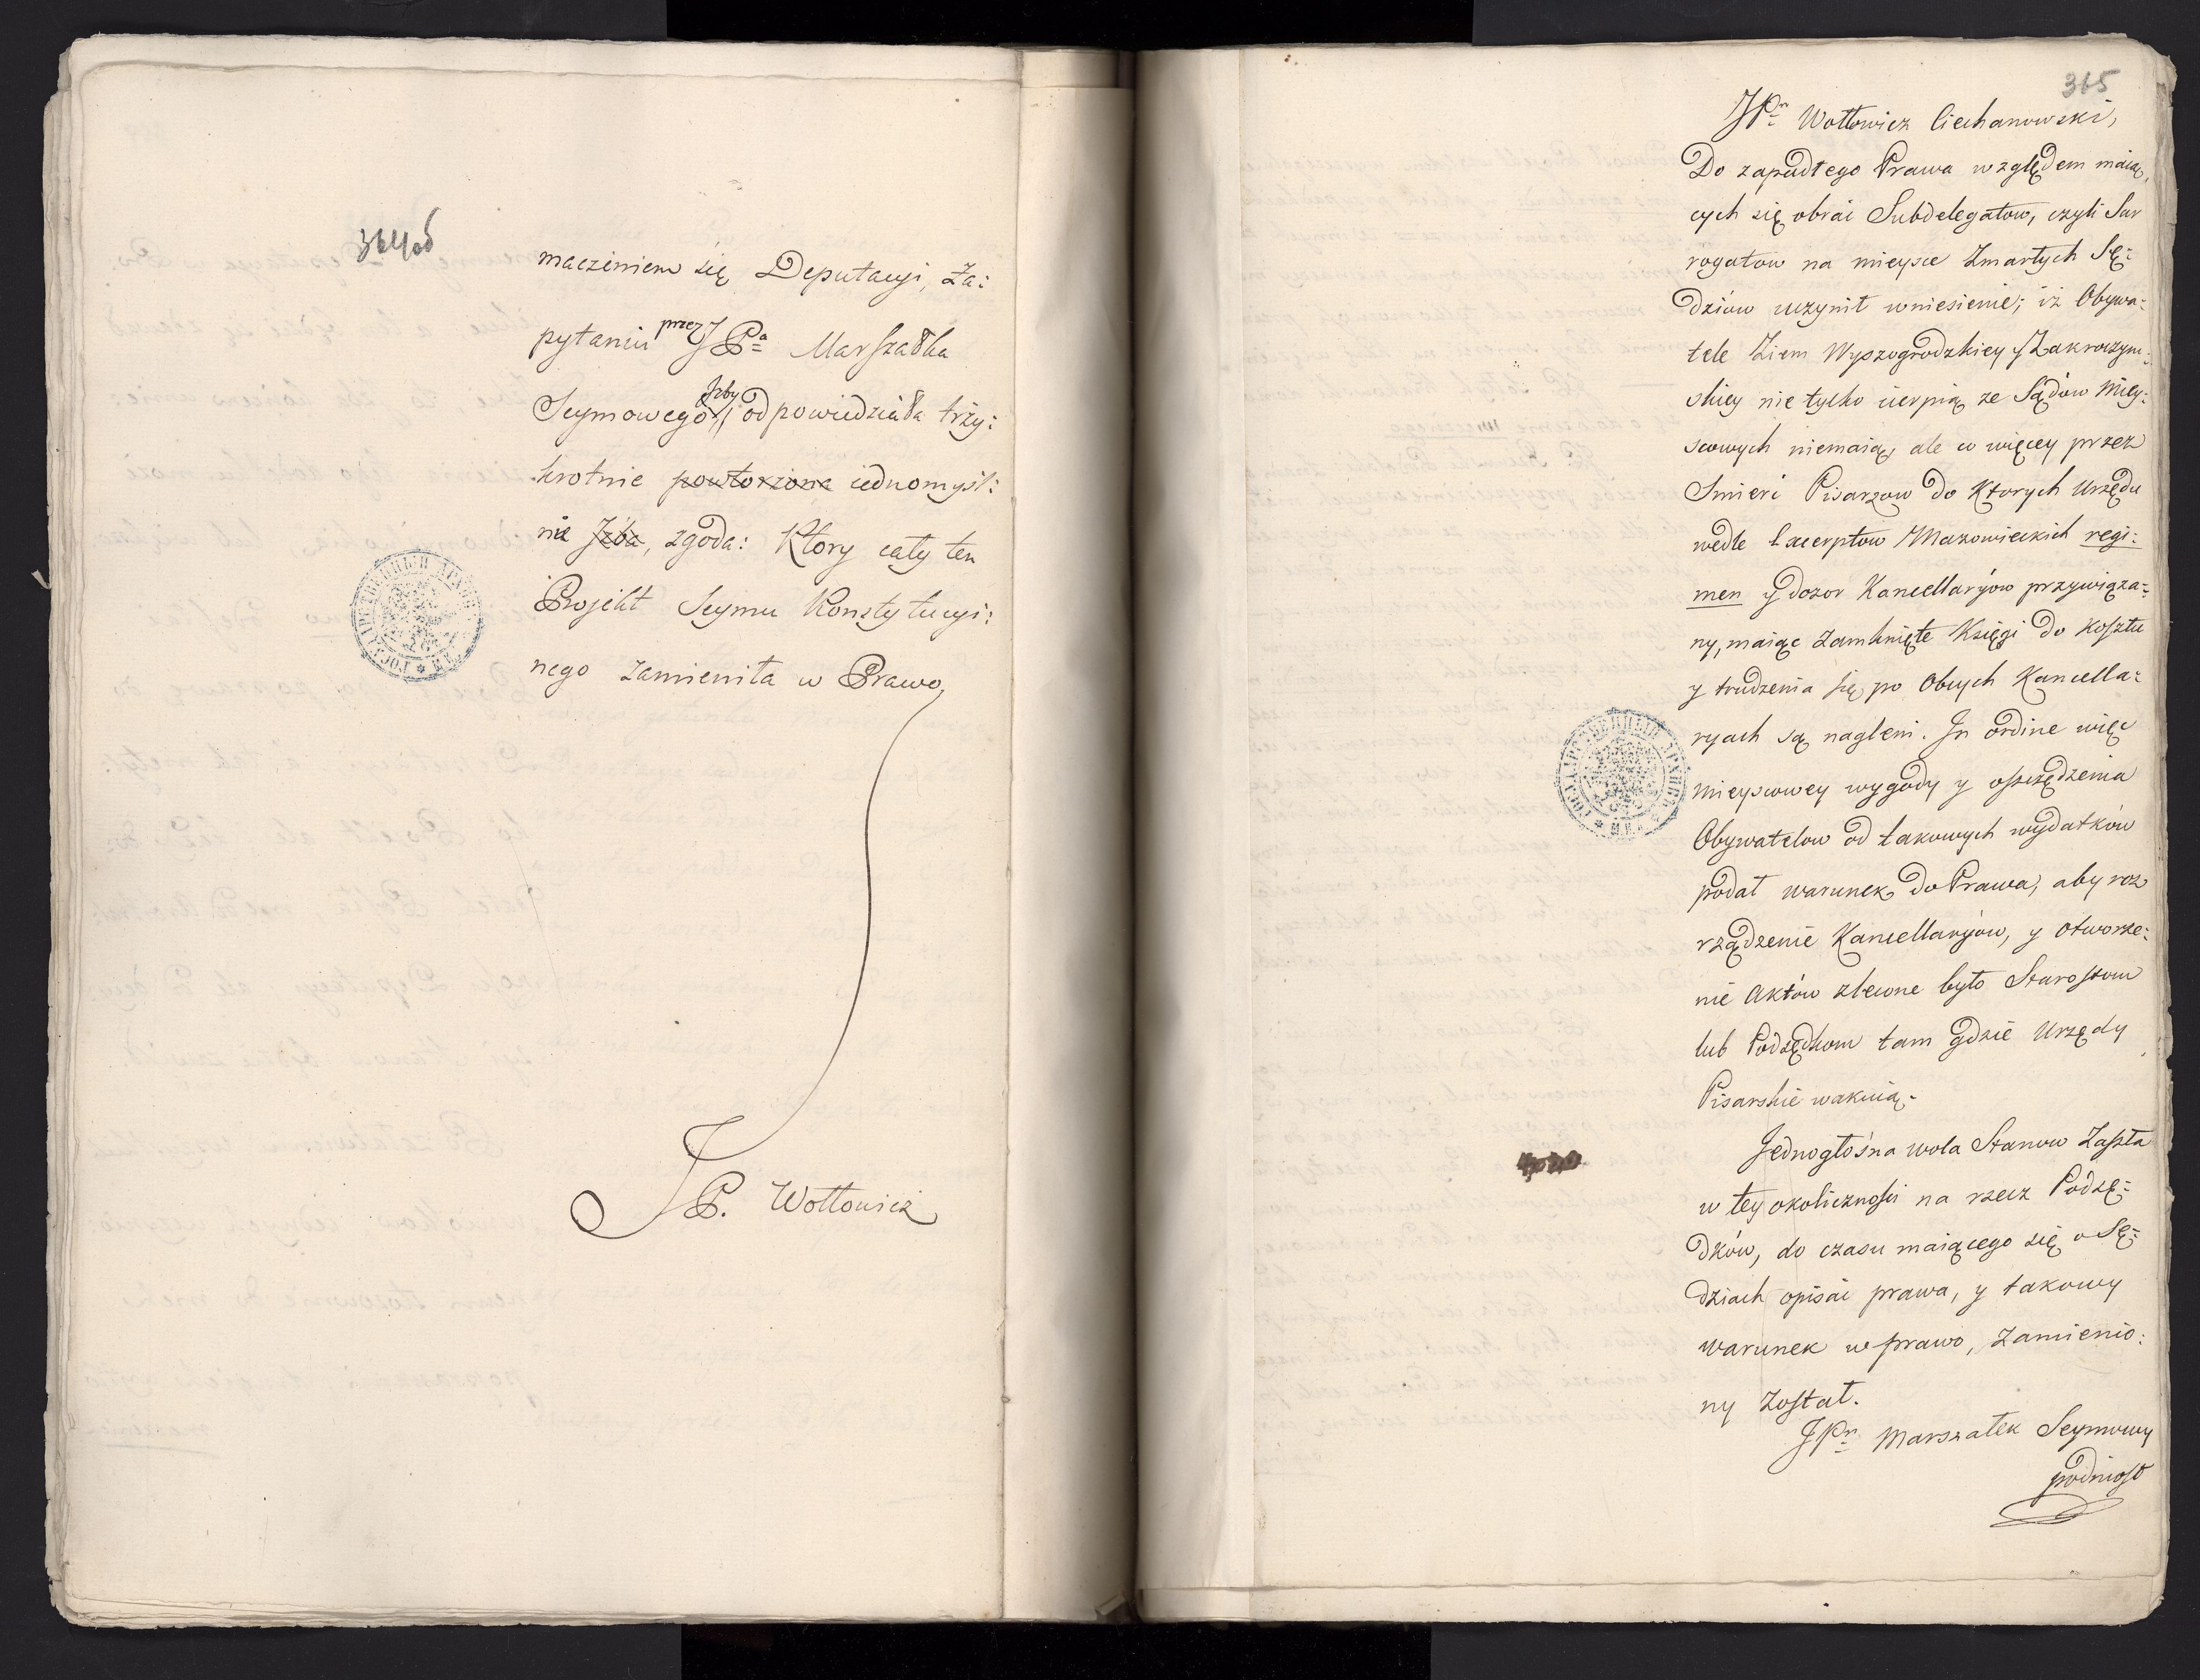 364об
maczeniem się Deputacyi, Za:
pytaniu przez JPa Marszałka
Seymowego Izby odpowiedziała trzy:
krotnie powtorzona iednomyśl:
nie Jzba, zgoda: Ktory cały ten
Projekt Seymu Konstytucyi:
nego zamieniła w Prawo,
JP. Wołłowicz
365
JPn Wołłowicz Ciechanowski,
Do zapadłego Prawa względem maiąc,
cych się obrać Subdelegatow, czyli Sur
rogatow na mieysce Zmarłych Sę:
dziow uczynił wniesienie; iż Obywa:
tele Ziem Wyszogrodzkiey y Zakroczym:
skiey nie tylko cierpią ze Sądow Miey:
scowych niemaią, ale co więcey przez
Smierć Pisarzow do Ktorych Urzędu
wedle Excerptow Mazowieckich regi:
men y dozor Kancellaryow przywiąza:
ny, maiąc zamknięte Księgi do Kosztu
y trudzenia się po Obcych Kancella:
ryach są nagleni. In ordine więc
mieyscowey wygody y oszczędzenia
Obywatelow od takowych wydatkow
podał warunek do Prawa, aby roz
rządzenie Kancellaryow, y otworze:
nie Aktow zlecone było Starostom
lub Podsędkom tam gdzie Urzędy
Pisarskie wakuią.
Jednogłośna wola Stanow Zaszła
w tey okoliczności na rzecz Podsę:
dkow, do czasu maiącego się o Sę:
dziach opisać prawa, y takowy
warunek w prawo, zamienio:
ny Został.
JPn Marszałek Seymowy
podniosł